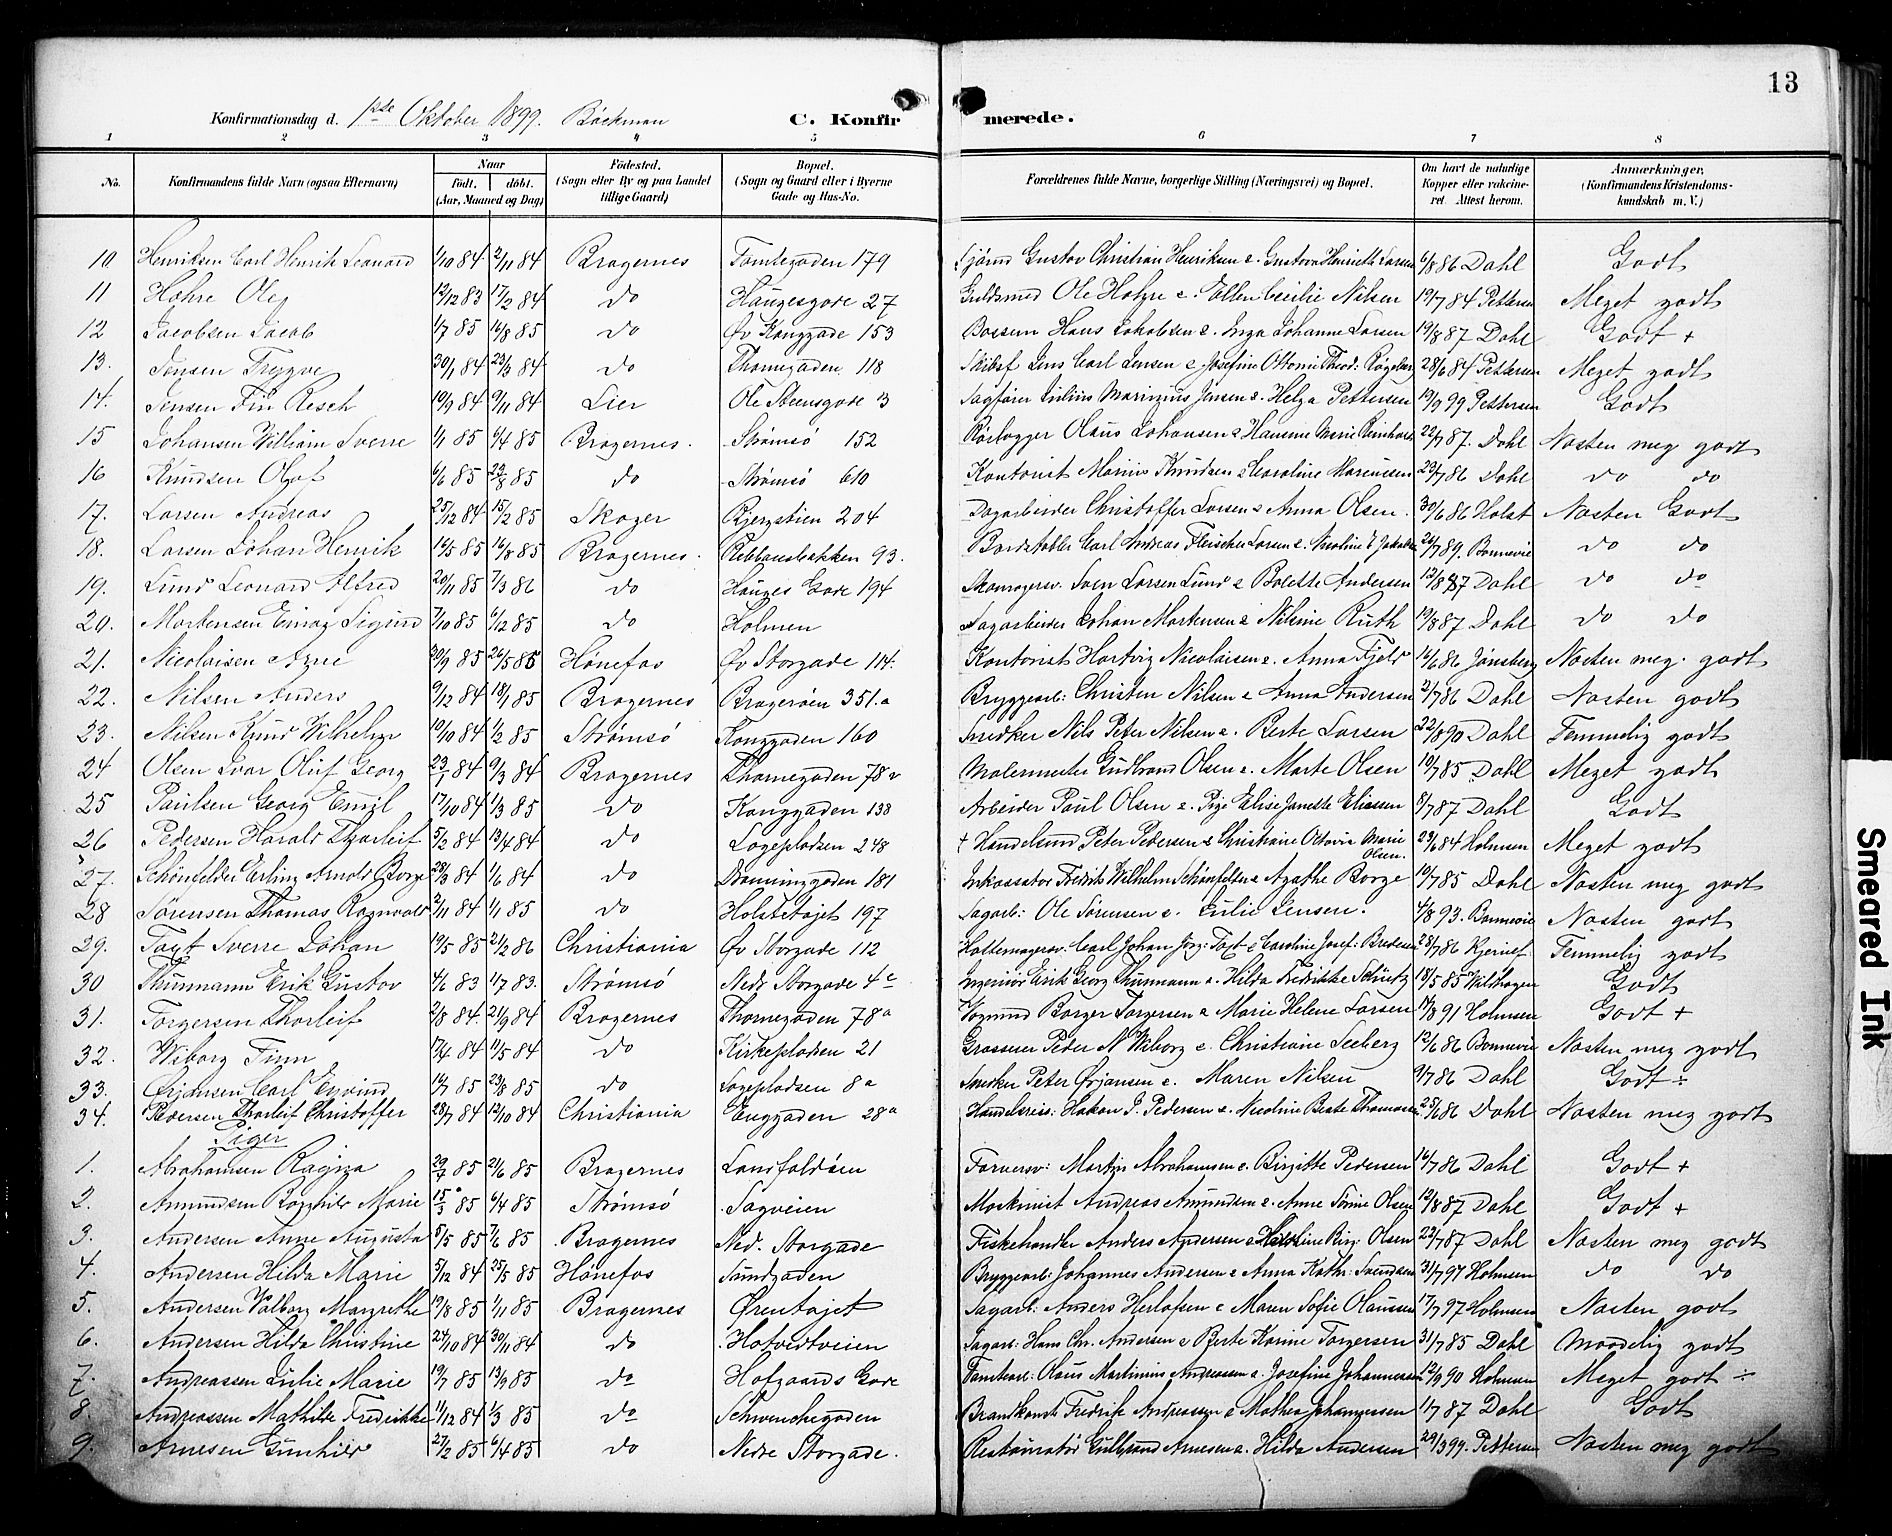 13
Konfirmationsdag d. 1ste Oktober 1899. Bäckman C. Konfirmerede.
1 2 3 4 5 6 7 8
No. Konfirmandens fulde Navn (ogsaa Efternavn) Naar født. døbt. (Aar, Maaned og Dag) Fødested. (Sogn eller By og paa Landet tillige Gaard) Bopæl. (Sogn og Gaard eller i Byerne Gade og Hus-No. Forældrenes fulde Navne, borgerlige Stilling (Næringsvei) og Bopæl. Om havt de naturlige Kopper eller vakcineret. Attest herom. Anmærkninger, (Konfirmandens Kristendomskundskab m. V.)
10 Henriksen Carl Henrik Leonard 1/10 84 2/11 84 Bragernes Tomtegaden 179 Gustav Christian Henriksen e. Gustava Henriette Larsen 6/8 86 Dahl Godt
11 Hohre Olaj 12/12 83 17/2 84 do Haugesgade 27 Guldsmed Ole Hohre e. Ellen Cecilie Nilsen 19/7 84 Pettersen Meget godt
12 Jacobsen Jacob 1/7 85 16/8 85 do Øv Konggade 153 Hans Jakobsen e. Inga Johanne Larsen 19/8 87 Dahl Godt +
13. Jensen Trygve 30/1 84 23/3 84 do Thornegaden 118 Skibsf Jens Carl Jensen e Josefine Ottomine Theod: 28/6 84 Pettersen Meget godt
14. Jensen Fin Resch 10/9 84 9/11 84 Lier Ole Steensgade 13 Sagfører Julius Marinius Jensen e. Helga Pettersen 19/9 99 Pettersen Godt
15 Johansen William Sverre 1/1 85 6/4 85 Bragernes. Strømsø 152 Rørlægger Olaus Johansen e Hansine Marie 22/7 87. Dahl Næsten meg godt
16 Knudsen Olaf 6/6 85 23/8 85 do Strømsø 610 Kontorist Marius Knudsen e Caroline Marcussen 29/7 86 Dahl do do
17. Larsen Andreas 25/12 84 15/2 85 Skoger Bjergstien 204 Dagarbeider Christoffer Larsen e Anna Olsen. 30/6 86 Holst Næsten Godt
18. Larsen Johan Henrik 14/5 85 16/8 85 Bragernes. Rebbansbakken 93. Bordstabler Carl Andreas Fleischer Larsen e. 26/7 89. Bonnevie do do
19. Lund Leonard Alfred 20/11 85 7/3 86 do Hauges Gade 194 Skomagersv. Sven Larsen Lund e Bolette Andersen 12/8 87 Dahl do do
20. Mortensen Einar Sigurd 7/10 85 6/12 85 do Holmen Sagarbeider Johan Mortensen e Nilsine Ruth 19/8 87 Dahl do do
21. Nicolaisen Arne 20/9 85 26/5 85 Hønefos Øv Storgade 114. Kontorist Hartvig Nicolaisen e. Anna Fjeld 14/6 86 Jønsberg Næsten meg. godt
22. Nilsen Anders 9/12 84 18/1 85 Bragernes Bragerøen 351.a Bryggearb: Christen Nilsen e Anna Andersen 2/7 86 Dahl Næsten godt
23. Nilsen Knud Wilhelm 10/10 84 1/2 85 Strømsø Konggaden 160 Snedker Nils Peter Nilsen e. Berte Larsen 22/8 90 Dahl Temmelig godt
24 Olsen Ivar Oluf Georg 23/1 84 9/3 84 Bragernes Thornegaden 78 v Malermester Gudbrand Olsen e. Marte Olsen 10/7 85 Dahl Meget godt
25 Paulsen Georg Emil 17/10 84 1/3 85 do Konggaden 138 Arbeider Paul Olsen e. Pige Elise Janette Eliassen 8/7 87 Dahl Godt
26 Pedersen Harald Thorleif 5/2 84 13/4 84 do Logepladsen 248 + Handelsmd Peter Pedersen e Christiane Ottovia Marie Olsen. 23/6 84 Holmsen Meget godt
27. Schönfelder Erling Arnold Borge 28/3 84 1/6 84 do Dronninggaden 181 Inkassator Fredrik Wilhelm Schönfelder e Agathe Borge 10/7 85 Dahl Næsten meg godt
28 Sørensen Thomas Ragnvald 2/11 84 1/1 85 do Holstetajet 197 Sagarb: Ole Sørensen e. Julie Jensen. 4/8 93. Bonnevie Næsten godt
29. Taxt Sverre Johan 19/5 85 21/2 86 Christiania Øv Storgade 112 Hattemagersv. Carl Johan Jørg: Taxt e Caroline Josef: Bredesen 28/7 86 Kjerulf Temmelig godt
30 Thurmann Erik Gustav 4/6 83 1/7 83. Strømsø Nedr Storgade 4 c Ingeniør Erik Georg Thurmann e. Hilda Fredrikke 18/5 85 Wildhagen Godt
31. Torgersen Thorleif 2/8 84. 21/9 84 Bragernes Thornegaden 78a Vognmd Borger Torgersen e Marie Helene Larsen 14/8 91 Holmsen Godt +
32. Wiborg Finn 17/4 84 11/5 84 do Kirkepladsen 21 Grosserer Peder N Wiborg e. Christiane Seeberg 12/6 86 Bonnevie Næsten meg godt
33. Ørjansen Carl Eyvind 14/7 85 23/8 85 do Logepladsen 8a Snedker Peter Ørjansen e. Maren Nilsen 9/7 86 Dahl Godt ÷
34. Pedersen Thorleif Christoffer 28/7 84 12/10 84 Christiania Enggaden 28a Handelsreis: Hakon J. Pedersen e. Nicoline Berte Thomasen 25/6 86 Dahl Næsten meg godt
Piger
1. Abrahamsen Ragna 29/7 85 21/6 85 Bragernes Landfaldøen Farversv: Martin Abrahamsen e. Birgitte Pedersen 16/7 86 Dahl Godt +
2. Amundsen Ragnhild Marie 15/3 85 6/4 85 Strømsø Sagveien Maskinist Andreas Amundsen e. Anne Sørine Olsen 12/8 87 Dahl Godt +
3. Andersen Anne Augusta 5/5 85 7/6 85 Bragernes Ned. Storgade Fiskehandler Anders Andersen e Birg: Olsen 22/7 87 Dahl Næsten meg godt
4. Andersen Hilda Marie 5/12 84 25/5 85 Hønefos Sundgaden Bryggearb: Johannes Andersen e Anna Kathr: Svendsen 31/7 97 Holmsen do do
5. Andersen Valborg Margrethe 19/8 85 1/11 85 Bragernes Ørentajet Sagarb: Anders Herlofsen e Maren Sofie Olaussen 17/7 97 Holmsen Næsten godt
6. Andersen Hilda Christine 24/10 84 30/11 84 do Hotvedtveien Sagarb: Hans Chr. Andersen e Berte Karine Torgersen 31/7 85 Dahl Maadelig godt
7. Andreassen Julie Marie 19/7 85 13/9 85 do Hofgaards Gade Tomtearb: Olaus Martinius Andreassen e. Josefine Johannessen 12/9 90 Holmsen Meget godt ÷
8. Andreassen Mathilde Fredrikke 11/12 84 1/3 85 do Schwenchegaden Brandkonst. Fredrik Andreassen e Mathea Johannessen 1/7 87 Dahl Godt
9. Arnesen Gunhild 27/2 85 6/4 85 do Nedre Storgade. Restauratør Gulbrand Arnesen e. Hilda Andersen 29/3 99. Pettersen Næsten meg godt
Smeared Ink